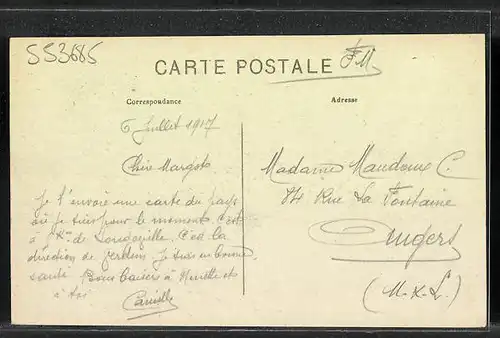 553685
CARTE POSTALE
F.M
Correspondance
Adresse
6 Juillet 1917
Chère Margot
Je t'envoie une carte du pays
où je suis pour le moment. C'est
à de C'est la
direction de Verdun. Je suis en bonne
santé. Bons baisers à et
à toi
Camille
Madame C.
84 Rue La Fontaine
Angers
(M-&-L.)